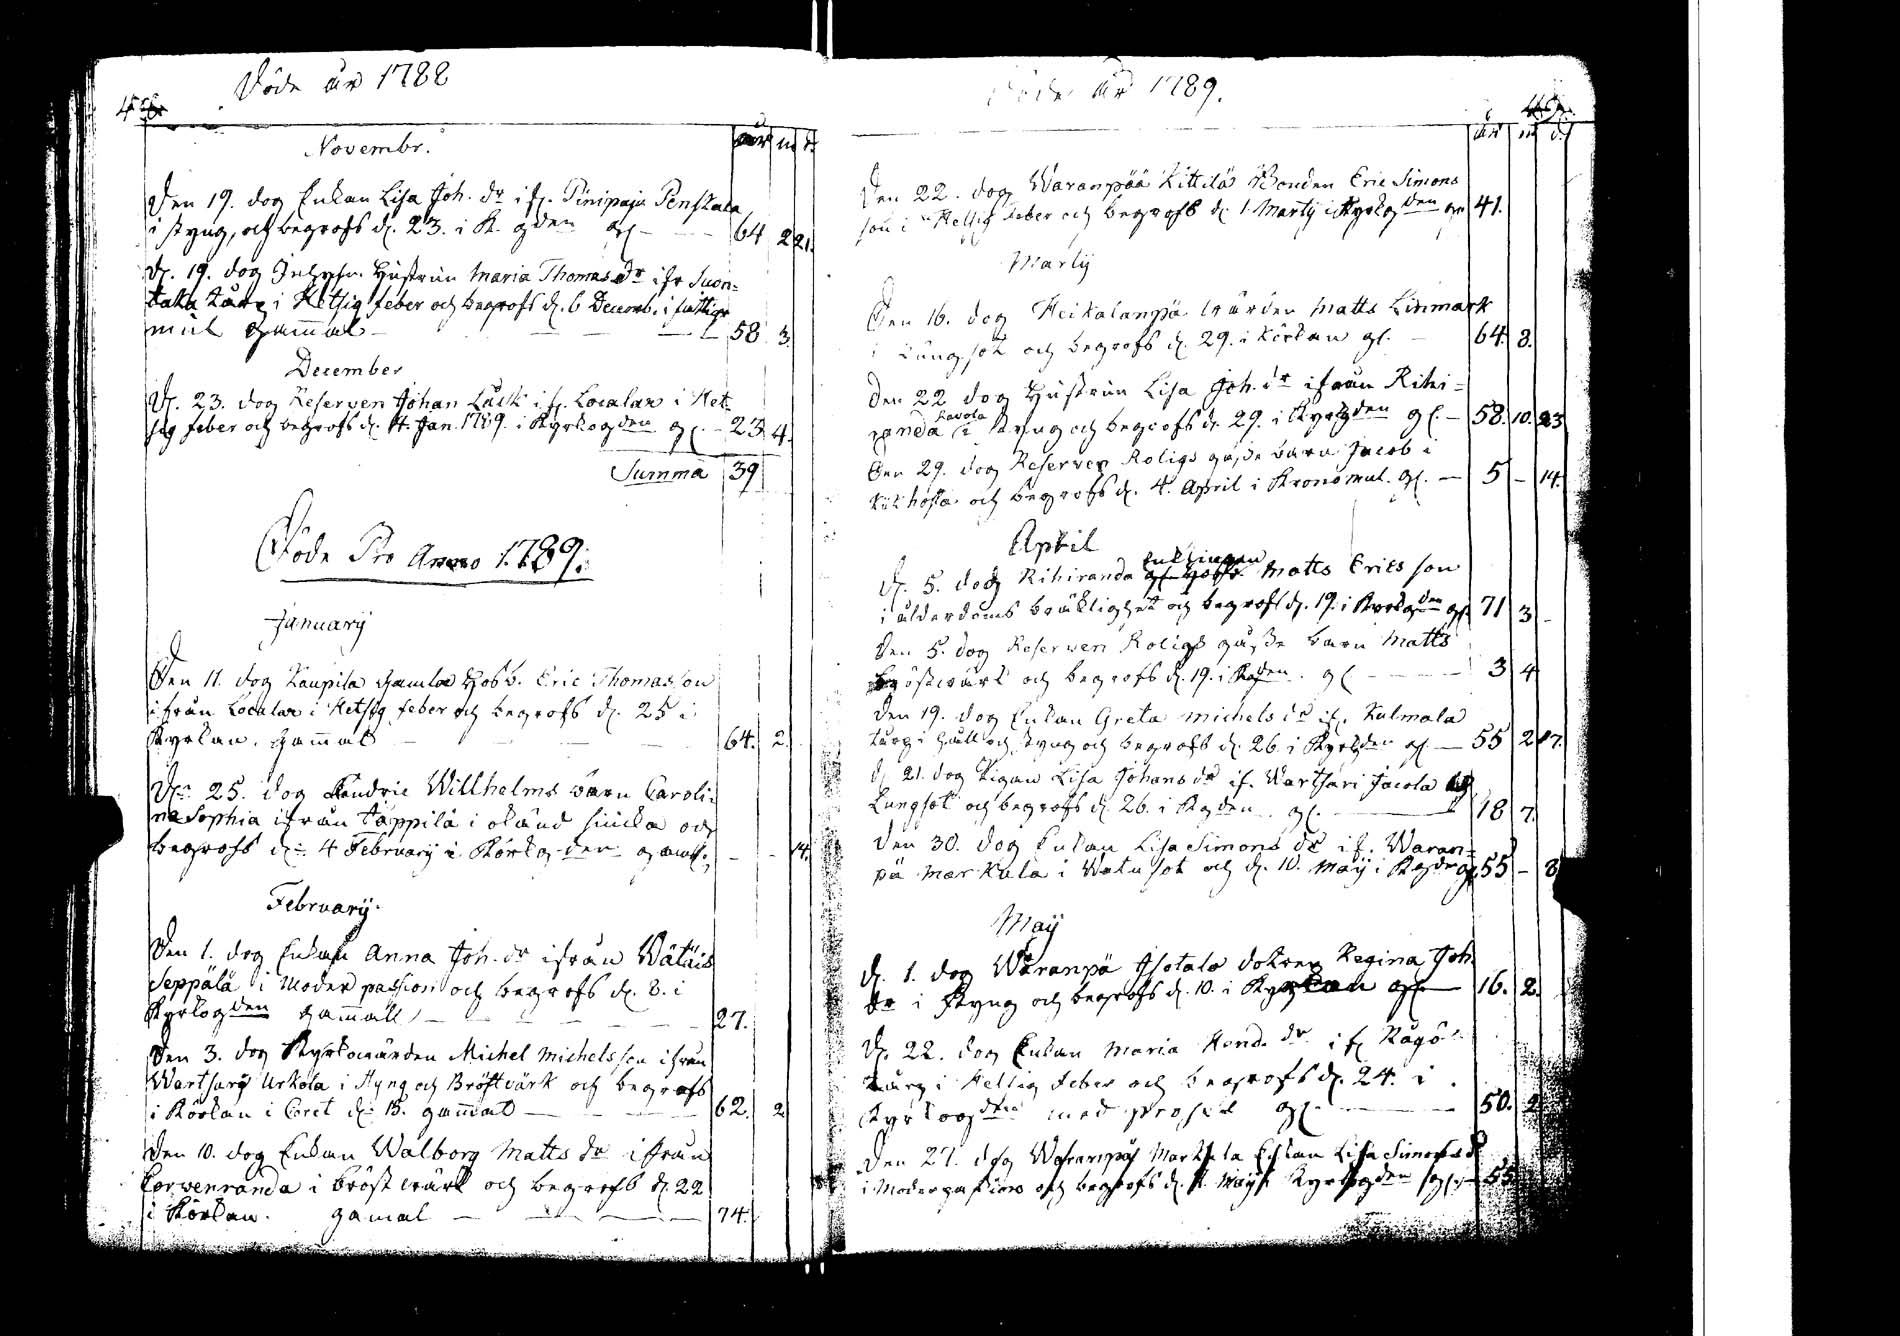 Döde år 1788
år m d.
Novembr.
Den 19. dog Enkan Lisa Joh. dr if. Pinipaju Penskala
i styng, och begrofs d. 23. i K. gden gl. 64 2 21.
d. 19. dog Hustrun Maria Thomasdr ifr Suon=
taka torp i Hetsig feber och begrofs d. 6 Decemb. i fattig
mul gammal 58 3.
December
d. 23. dog Reserven Johan Lusk if. Localax i Het-
sig feber och begrofs d. 4 Jan. 1789. i Kyrkogden gl. 23 4.
Summa 39
Döde Pro Anno 1789.
January
Den 11. dog Kaupila gamla Hosb. Eric Thomasson
ifrån Localax i Hetsig feber och begrofs d. 25 i
Kyrkan. gammal 64. 2.
Den 25. dog Willhelms barn Caroli-
na Sophia ifrån Täppilä i okänd siucka och
begrofs d. 4 February i Körkogden gammal 14.
February.
Den 1. dog Enkan Anna Joh. dr ifrån Wätäis
Seppälä i Moder passion och begrofs d. 8. i
Kyrkogden gammall 27.
Den 3. dog Kyrkovärden Michel Michelsson ifrån
Wartsary Urkola i Styng och Bröstvärk och begrofs
i Körkan i Coret d. 15. gammal 62. 2
Den 10. dog Enkan Walborg Matts dr ifrån
Corvenranda i bröst värk och begrofs d. 22
i Körkan. gamal 74.
Döde år 1789.
år m d.
Den 22. dog Waranpää Kittilä Bonden Eric Simons
son i Hetsig feber och begrofs d. 1. Marty i Kyrkogden gl. 41.
Marty
Den 16. dog Heikalanpä wärden Matts Linmark
i Lungsot och begrofs d. 29. i Körkan gl. 64. 8.
Den 22 dog Hustrun Lisa Joh. dr ifrån Rihi=
randa Lavola i styng och begrofs d. 29. i Kyrkogden gl. 58. 10. 23
Den 29. dog Reserven Roligs gosse barn Jacob i
kikhosta och begrofs d. 4. April i Kronomul. gl. 5 - 14.
April
d. 5. dog Rihiranda Enklingen Matts Ericsson
i ålderdoms bräklighet och begrofs d. 19. i Kyrkogden gl. 71 3 -
Den 5. dog Reserven Roligs gosse barn Matts
Bröstvärk och begrofs d. 19. i Kogden. gl. 3 4
Den 19. dog Enkan Greta Michels dr if. Kulmala
torp i håll och styng och begrofs d. 26 i Kyrkogden gl. 55 2 17.
d. 21. dog Pigan Lisa Johans dr if. Wartsari Jacola
Lungsot och begrofs d. 26. i Kogden gl. 18 7.
Den 30. dog Enkan Lisa Simons dr if. Waran=
pä Markula i Watusot och d. 10. May i Kogden gl. 55 - 8
May
d. 1. dog Waranpä Isotalo dotren Regina Joh.
dr i Styng och begrofs d. 10. i Kyrkan gl. 16. 2.
d. 22. dog Enkan Maria Hend. dr if. Kågö
torp i Hettig feber och begrofs d. 24. i
Kyrkogden med gl. 50. 2
Den 27. dog Waranpä Markula Enkan Lisa Simonsd
i Moderpassion och begrofs d. May i Kyrkogden gl. 55